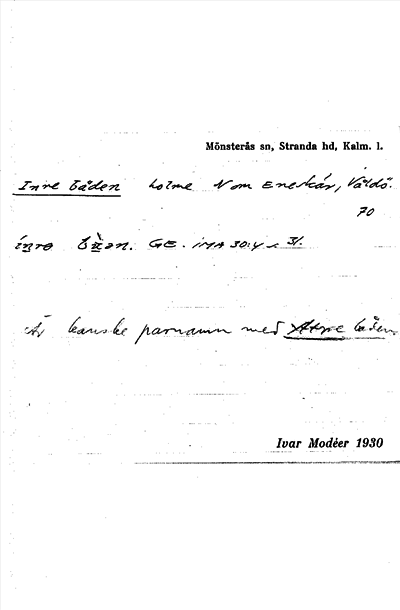 Mönsterås sn, Stranda hd, Kalm. l.
Inre båden holme N om Eneskär, Väldö.
70
inrə GE. IMA 30:4 s 31.
Är kanske parnamn med Yttre båden
Ivar Modéer 1930